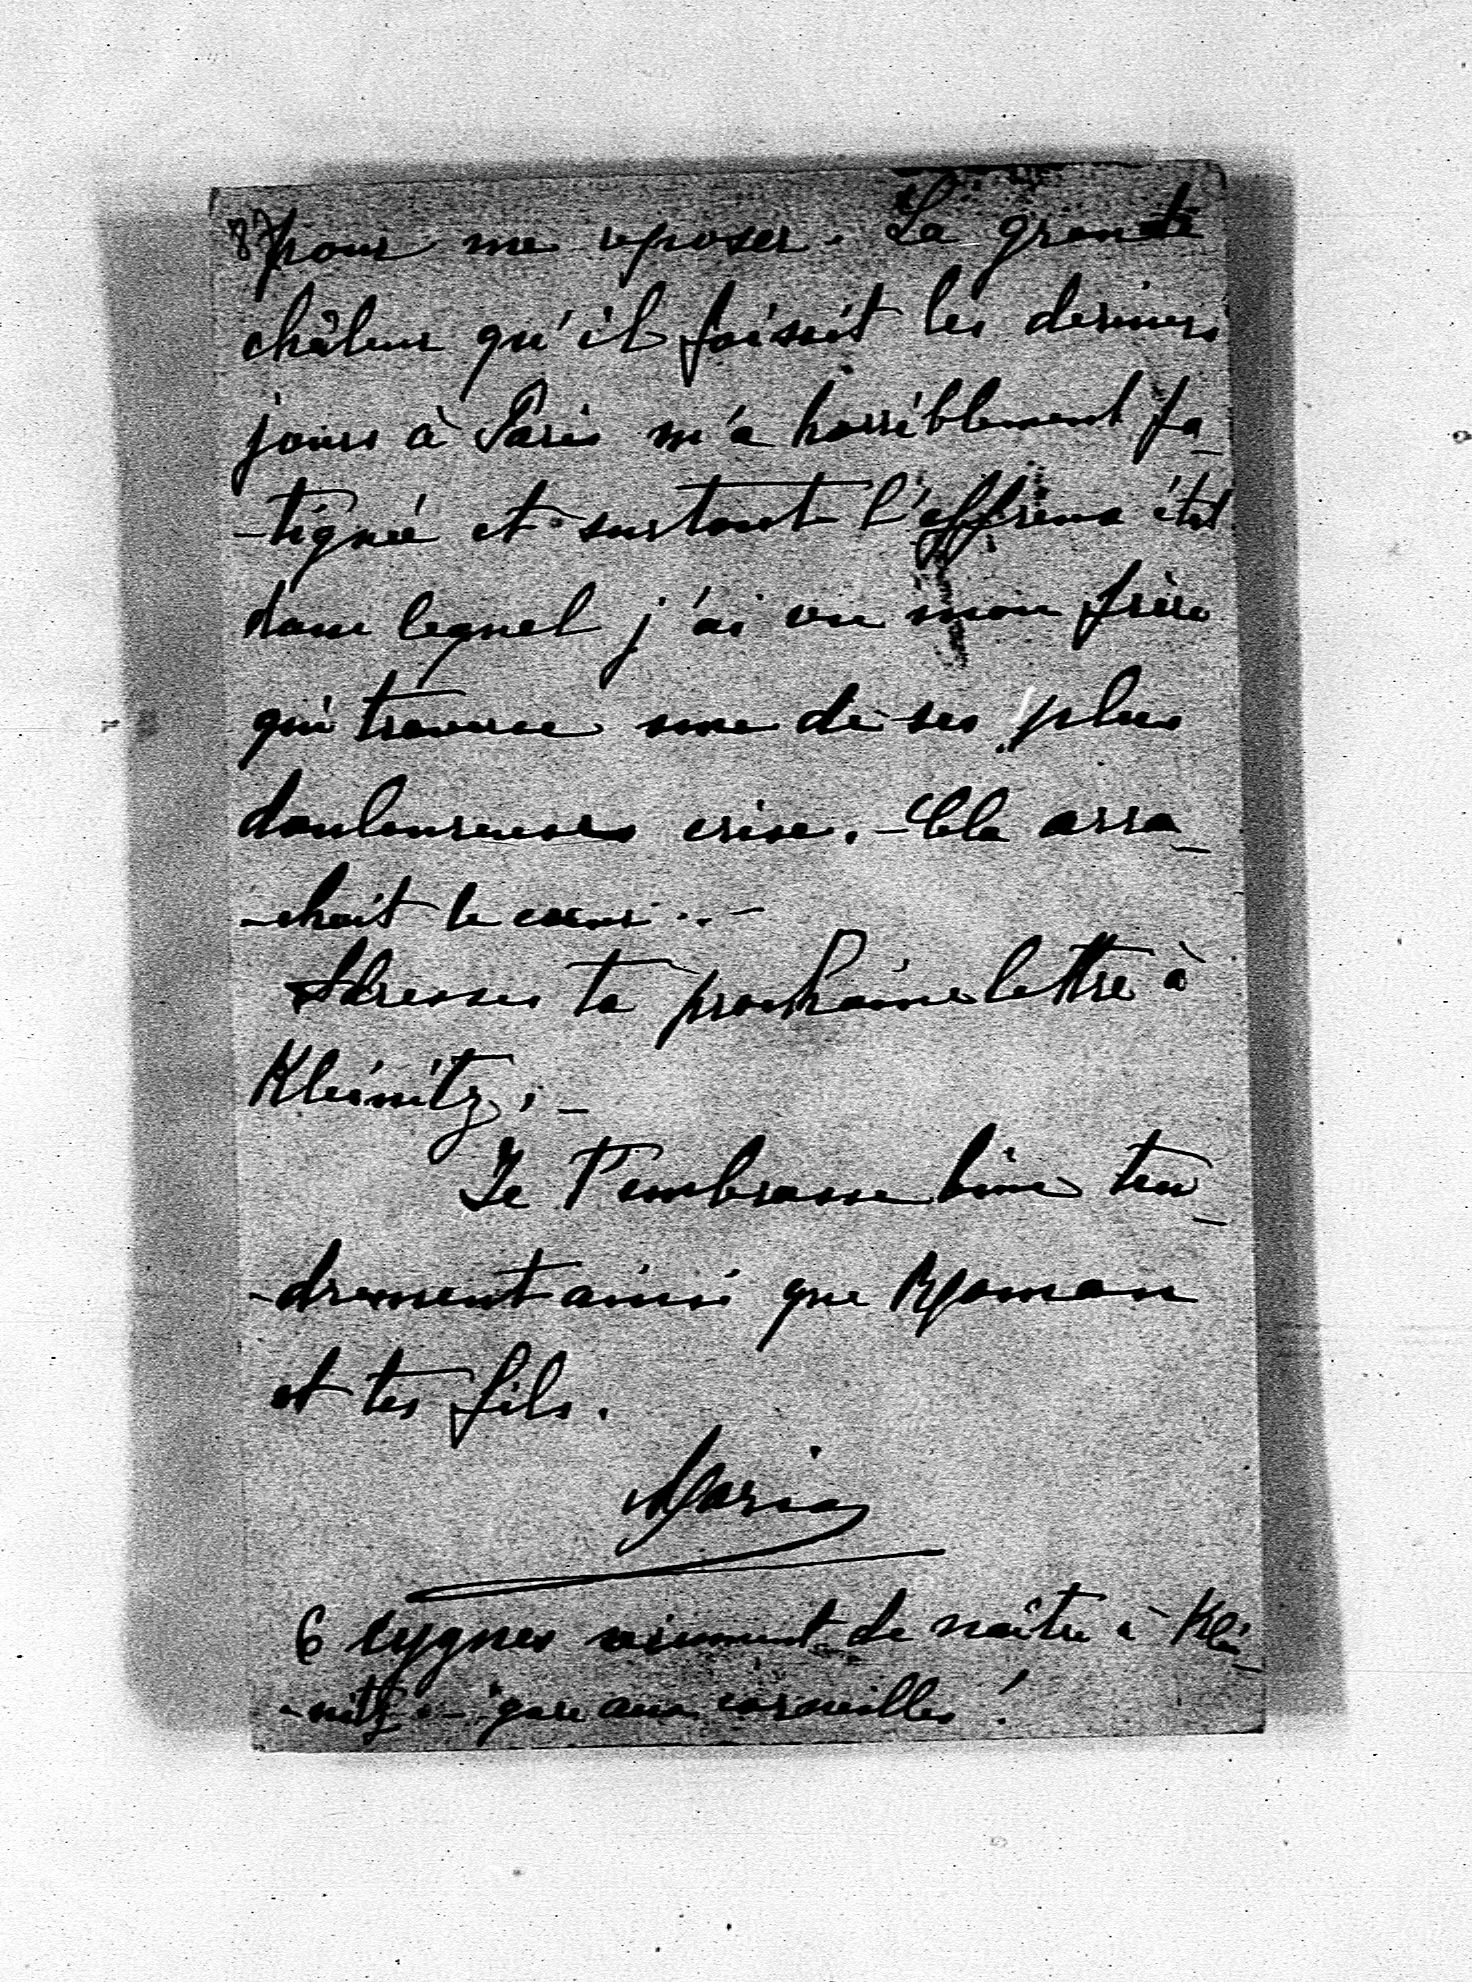 87 pour me reposer. La grande
chaleur qu'il faisait les derniers
jours à Paris m'a horriblement fa-
-tiguée et surtout l'affreux état
dans lequel j'ai vu mon frère
qui traverse une de ses plus
douloureuses crise. - Cela arra-
-chait le cœur... -
Adresses ta prochaine lettre à
Kleinitz; -
Je t'embrasse bien ten-
-drement ainsi que Roman
et tes fils.
Maria
6 cygnes viennent de naître à Klei-
-nitz - gare aux corneilles!